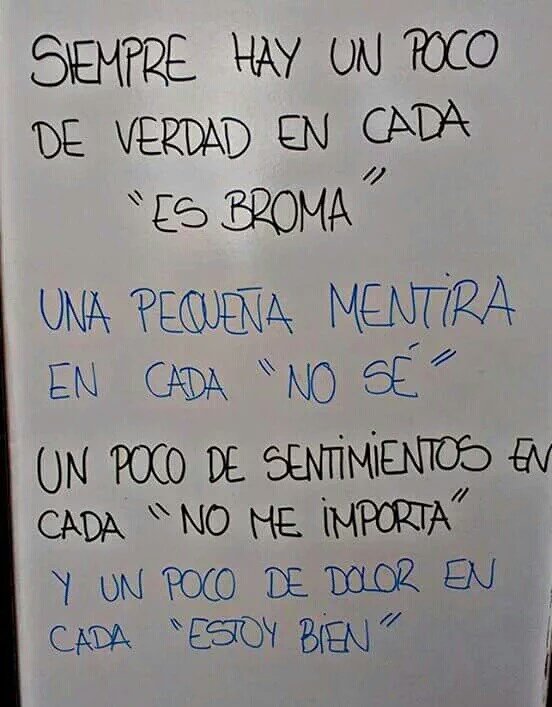 SIEMPRE HAY UN POCO
DE VERDAD EN CADA
"ES BROMA"
UNA PEQUEÑA MENTIRA
EN CADA "NO SÉ"
UN POCO DE SENTIMIENTOS EN
CADA "NO ME IMPORTA"
Y UN POCO DE DOLOR EN
CADA "ESTOY BIEN"